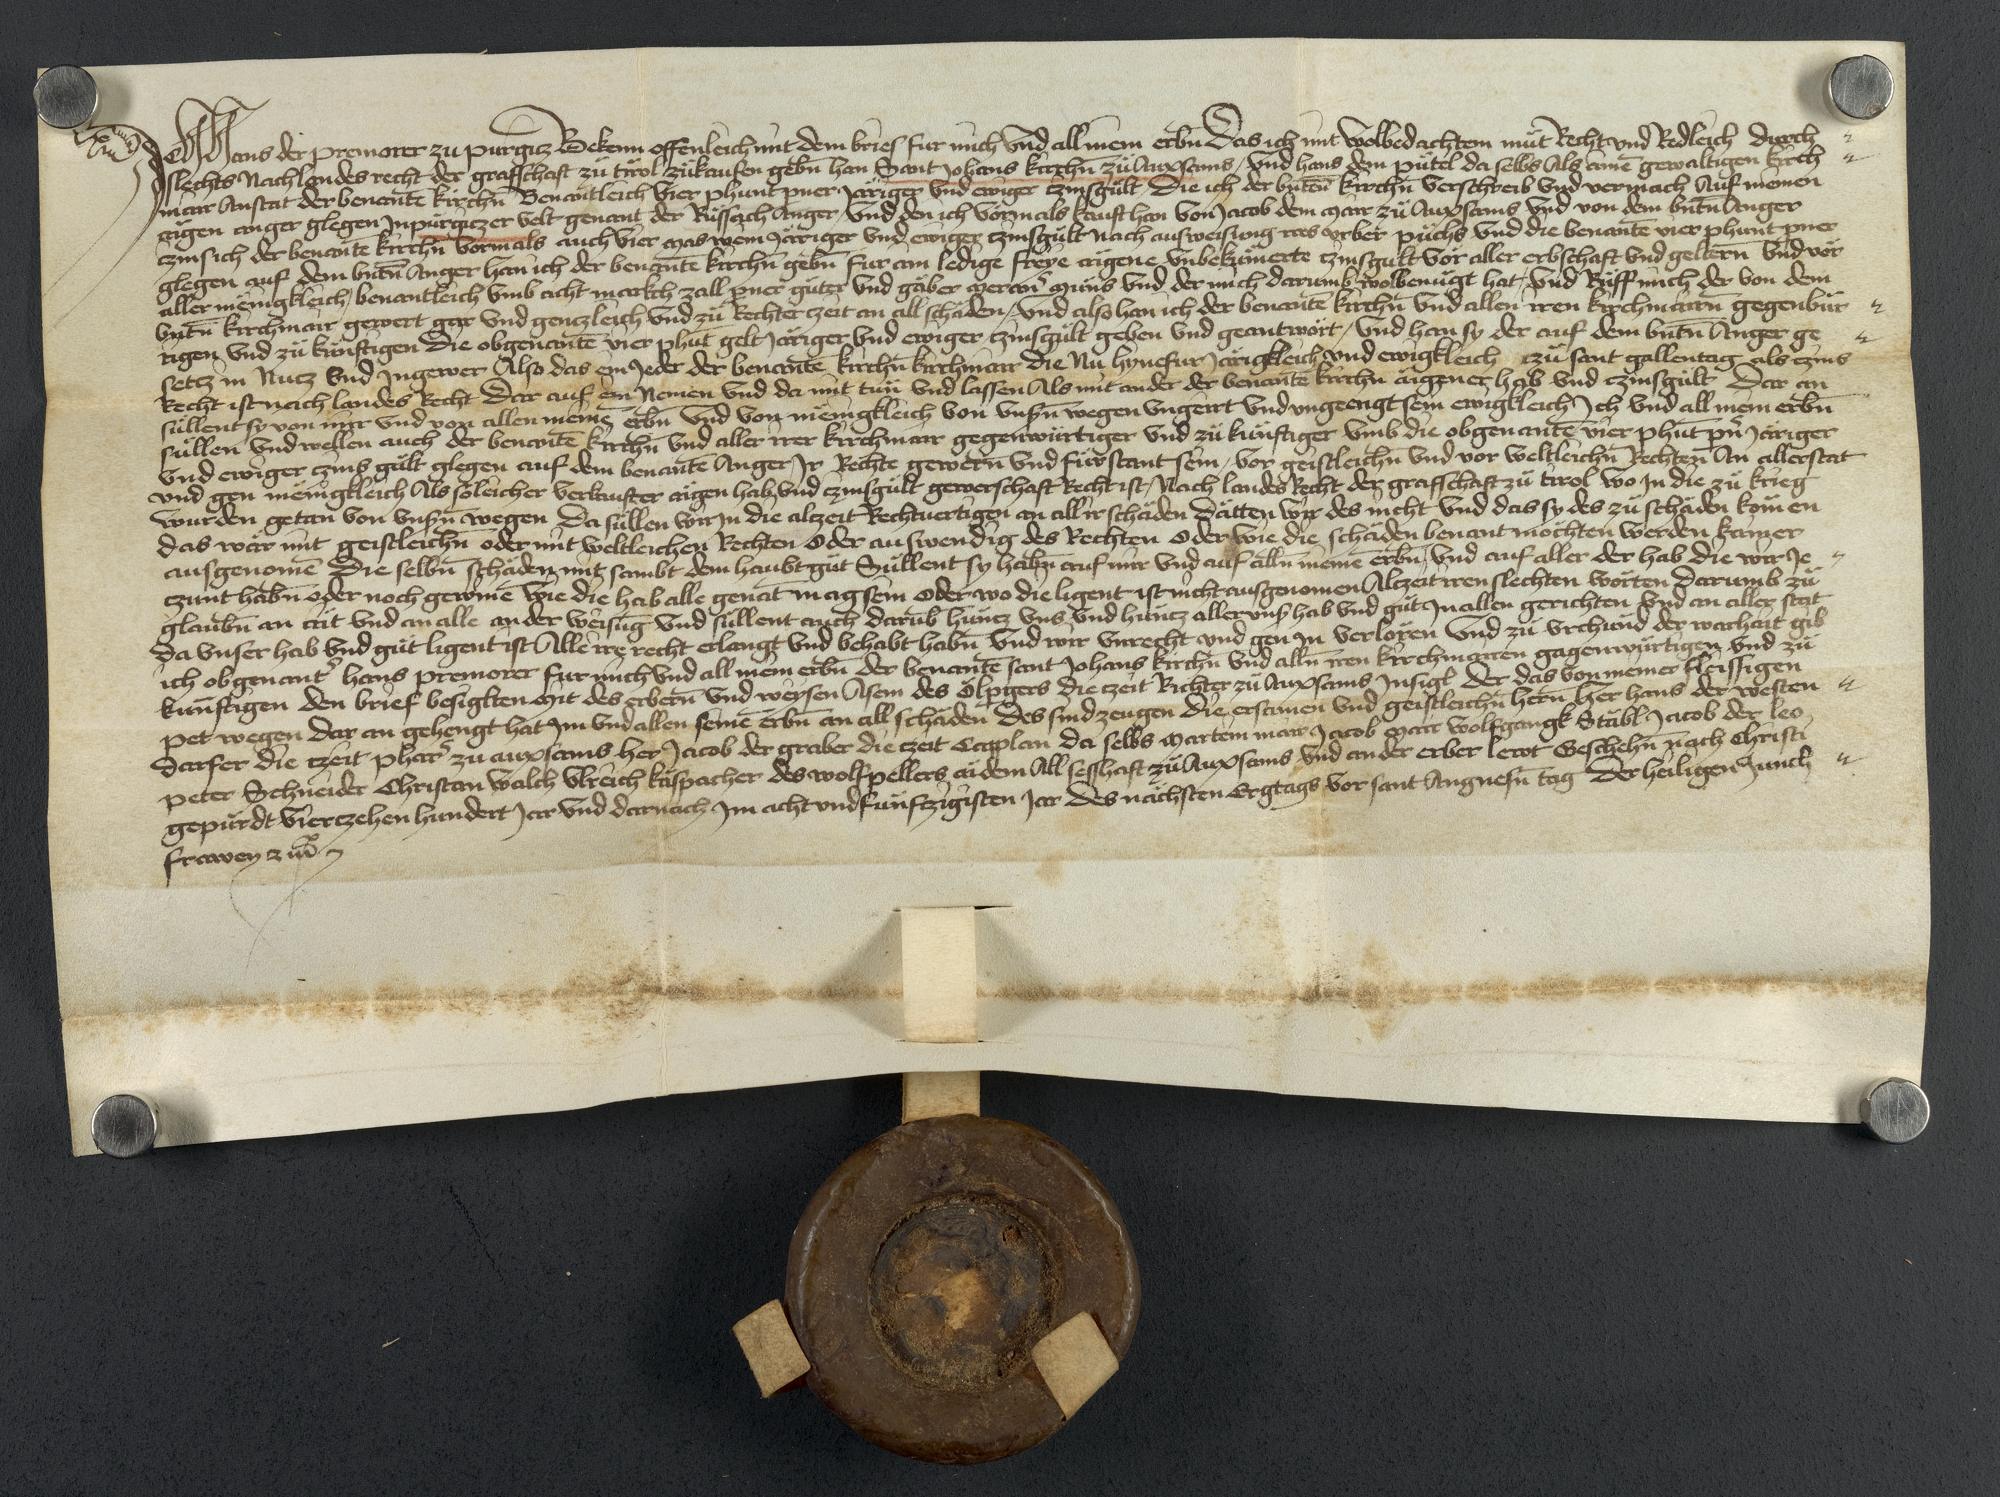 Ich Hans der premorer zu purgitz Bekenn offenleich mit dem brief fur mich vnd all mein erbn̄ Das ich mit wolbedachtem můt Recht vnd Redleich durch
slechts Nach landes recht der graffschaft zů tirol zůkaufen gebn̄ han Sant Johans kirchn̄ zů Auxsams / vnd hans dem půtel da selbs Als ainē gewaltigen kirch
mair Anstat der benantē kirchn̄ Benantleich vier phunt pner Järiger vnd ewiger czinsgült Die ich der bntn̄ kirchn̄ verschreib vnd vermach Auf meinen
aigen anger glegen In purgiczer velt genant der Rüssach Anger / vnd den ich vormals kauft han von Jacob dem Mair zů Auxsams vnd von dem bntn̄ Anger
czins ich der benantē kirchn̄ vormals auch vier mas wein Järiger vnd ewiger czinsgült nach ausweisung irs vrber půchs vnd die benantē vier phunt pner
glegen auf dem bntn̄ Anger han ich der benantē kirchn̄ gebn̄ fur ain ledige freye aigene vnbekůmerte czinsgült vor aller erbschaft vnd geltern̄ vnd vor
aller mēnigkleich / benantleich vmb acht markch zall pner guter vnd gäber meran̄ můns vnd der mich darumb wolbenůgt hat / vnd Růff mich der von dem
bntn̄ kirchmair gewert gar vnd genczleich vnd zů Rechter czeit an all schäden / vnd also han ich der benantē kirchn̄ vnd allen iren kirchmairn̄ gegenbůr
tigen vnd zů kůnftigen Die obgenantē vier phūt gelt Järiger vnd ewiger czinsgült geben vnd geantwort / vnd han sy der auf dem bntn̄ Anger ge
setcz in Nutz vnd Ingewer Also das ein Jeder der benantē kirchn̄ kirchmair die Nu hynefur Järigkleich vnd ewigkleich zů sant gallentag als czins
Recht ist nach landes Recht Dar auf ein Nemen vnd da mit tůn vnd lassen Als mit ander der benantē kirchn̄ aigener hab vnd czinsgült Dar an
süllent sy von mir vnd von allen meinē erbn̄ vnd von mēnigkleich von vnsn̄ wegen vngeirrt vnd vngeengt sein ewigkleich Ich vnd all mein erbn̄
süllen vnd wellen auch der benantē kirchn̄ vnd aller irer kirchmair gegenwürtiger vnd zů kůnftiger vmb die obgenantē vier phūt pn̄ Järiger
vnd ewiger czins gült glegen auf dem benantē Anger Ir Rechte gewern̄ vnd fürstant sein / vor geistleichn̄ vnd vor weltleichn̄ Rechten̄ An allerstat
vnd gen mēnigkleich Als soleicher verkaufter aigen hab vnd czinsgült gewerschaft Recht ist / Nach landes Recht der graffschaft zů tirol wo In die zů krieg
wurden getan von vnsn̄ wegen Da süllen wir In die alczeit Rechtuertigen an all ir schäden Dätten wir des nicht vnd das sy des zů schäden komen
das wär mit geistleichn̄ oder mit weltleichen Rechten Oder auswendig des Rechten Oder wie die schäden benant möchten werden kainer
ausgenomē Die selbn̄ schäden mit sambt dem haubtgůt Süllent sy habn̄ auf mir vnd auf alln̄ meinē erbn̄ / vnd auf aller der hab die wir Je
czunt habn̄ oder noch gewinē wie die hab alle genāt mag sein Oder wo die ligent ist nicht ausgenomen Alczeit iren slechten worten Darumb zů
glaubn̄ an ait vnd an alle ander weisūg vnd süllent auch darūb hincz vns vnd hincz aller vnsr̄ hab vnd gůt In allen gerichten vnd an aller stat
Da vnser hab vnd gůt ligent ist Alle ire recht erlangt vnd behabt habn̄ vnd wir vnrecht vnd gen In verloren Vnd zů vrchund der warhait gib
ich obgenant̄ hans premorer fur mich vnd all mein erbn̄ der benantē sant Johans kirchn̄ vnd alln̄ iren kirchmairen gagenwürtigen vnd zů
kůnftigen den brief besiglten Mit des erbern̄ vnd weysen Asem des Ölpigers die czeit Richter zů Auxsams Insigl Der das von meiner fleissigen
pet wegen dar an gehengt hat Im vnd allen seinē erbn̄ an all schäden Des sind zeugen Die ersamen vnd geistleichn̄ hern̄ Her hans der westen
darfer die czeit pharr̄ zu auxsams her Jacob der graber die czeit Capplan da selbs Martein mair Jacob Mair wolfgangk Stäbl Jacob der leo
peter Schneider Christan walch Vlreich kaspacher des wolfpellers aidem All sesshaft zů Auxsams vnd ander erber lewt Geschehn̄ nach Christi
gepůrdt vierczehen hundert Jar vnd darnach Im acht vnd fůnftzigisten Jar Des nächsten Ergtags vor sant Angnesn̄ tag Der heiligen Junckh
frawen